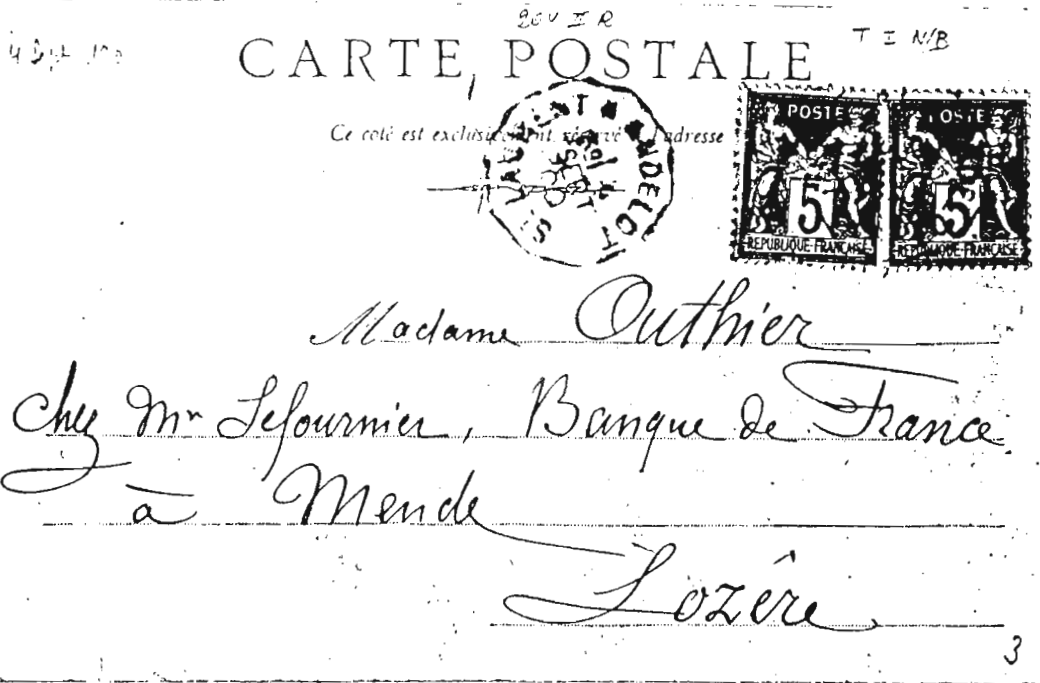 T I N/B
CARTE POSTALE
Ce coté est exclusivement réservé à l'adresse
St LAURENT * ANDELOT
POSTE
5
REPUBLIQUE FRANÇAISE
POSTE
5
REPUBLIQUE FRANÇAISE
Madame Outhier
chez Mr Lefournier, Banque de France
à Mende
Lozère
3